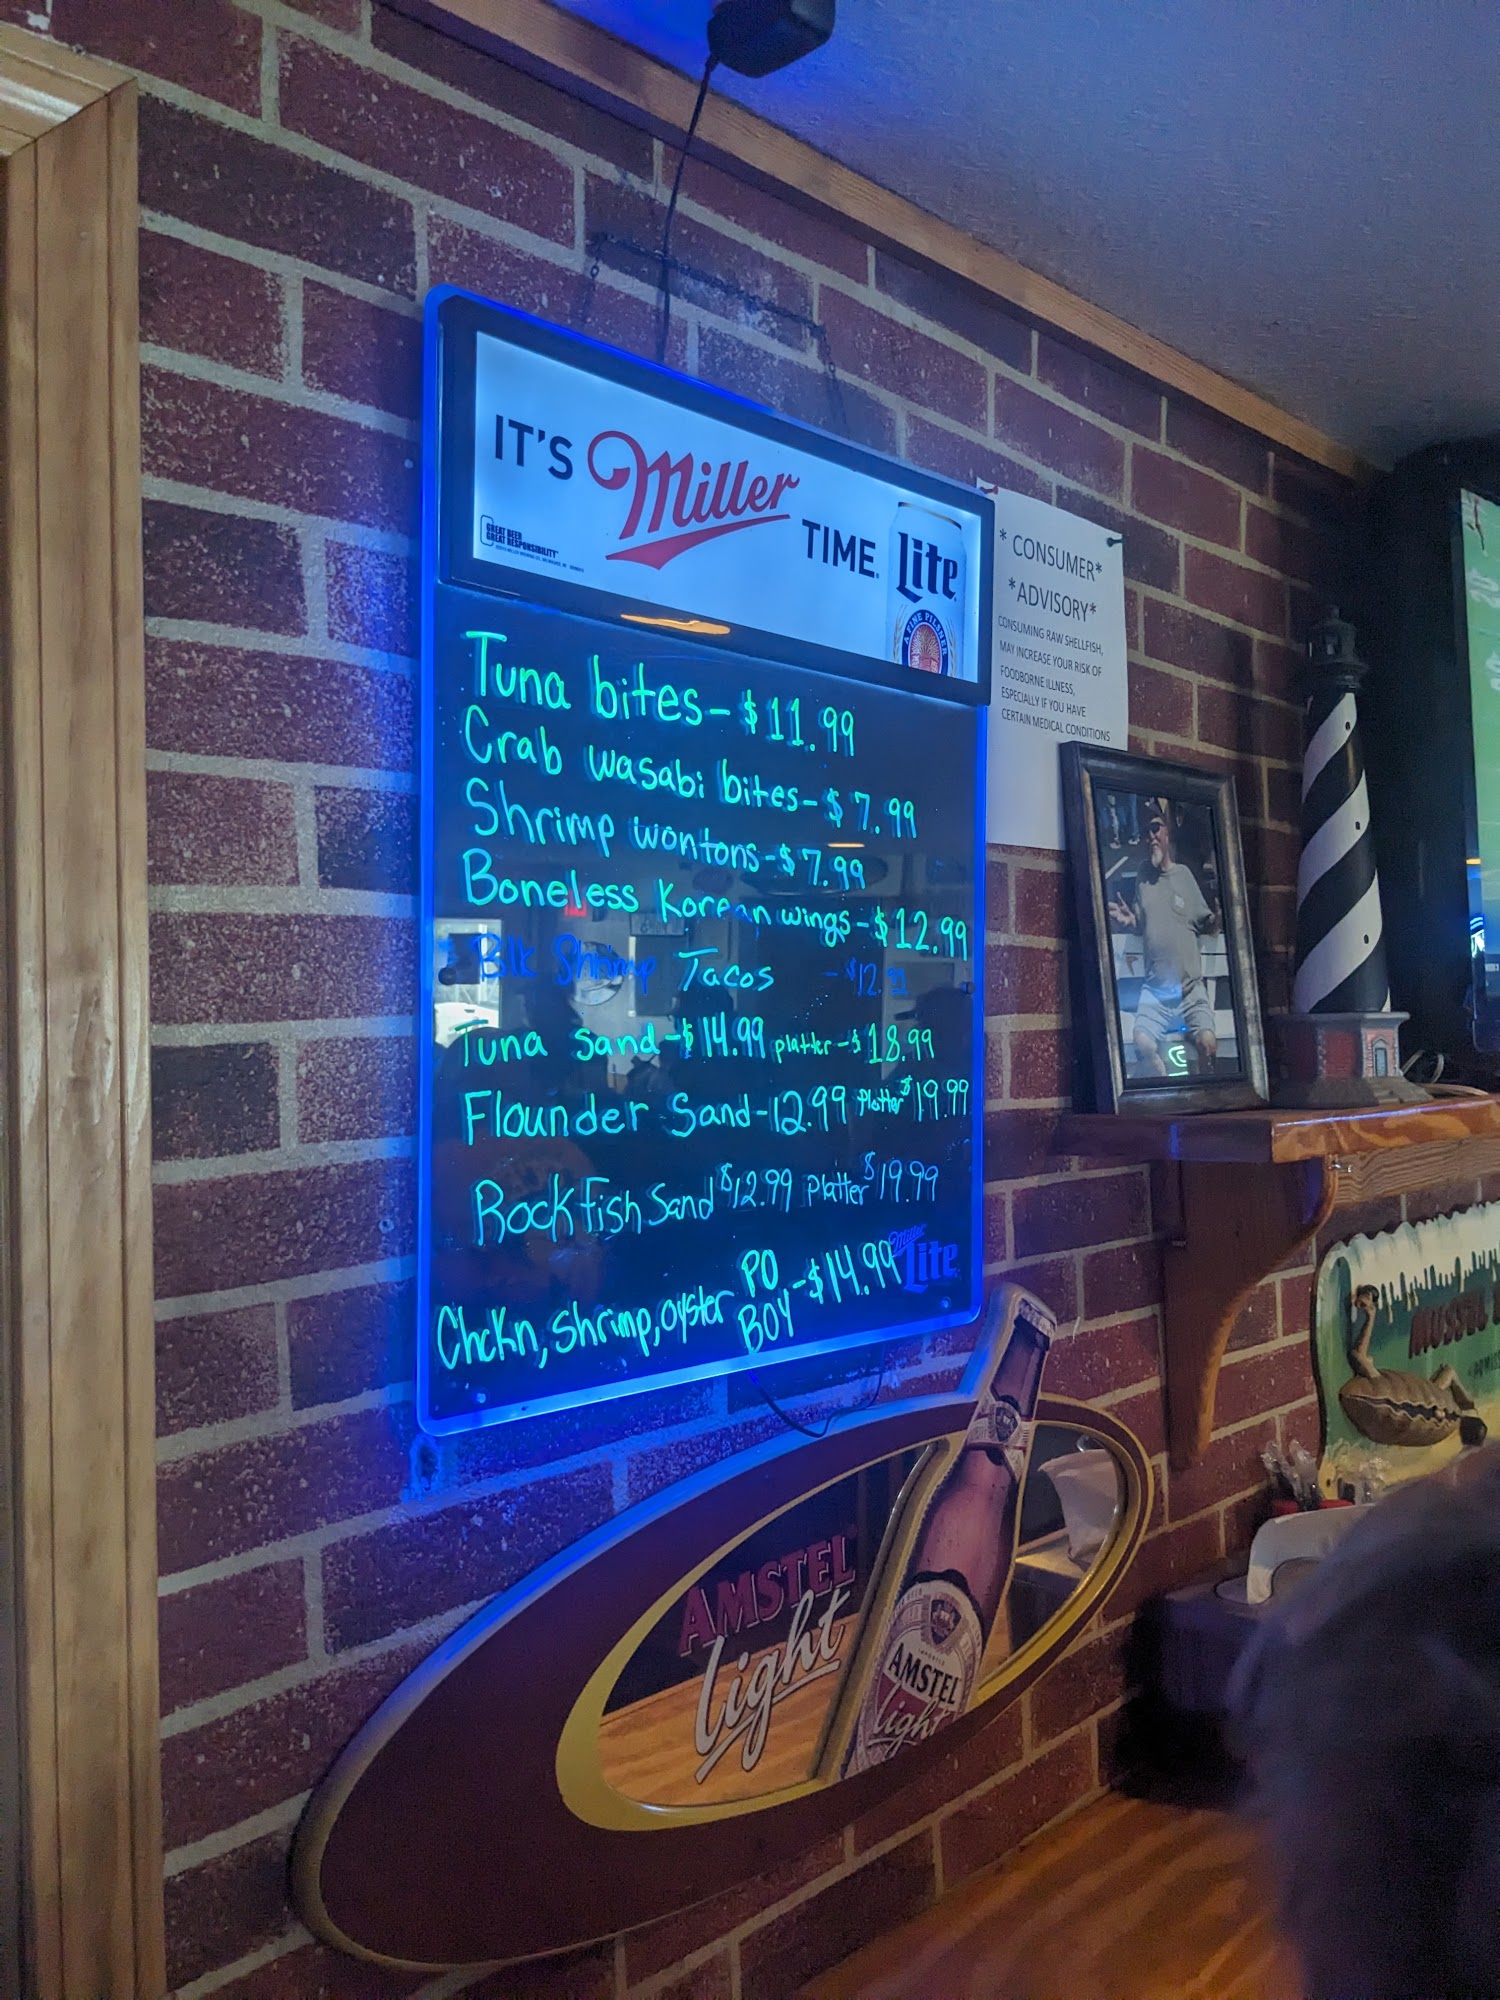 IT'S Miller TIME.
GREAT BEER
GREAT RESPONSIBILITY
Lite
A FINE PILSNER
Tuna bites - $11.99
Crab wasabi bites - $7.99
Shrimp wontons - $7.99
Boneless Korean wings - $12.99
* Blk Shrimp Tacos - $12.
Tuna Sand - $14.99 platter - $18.99
Flounder Sand - 12.99 platter $19.99
Rockfish Sand $12.99 platter $19.99
Chckn, shrimp, oyster PO BOY - $14.99
Miller Lite
* CONSUMER*
*ADVISORY*
CONSUMING RAW SHELLFISH,
MAY INCREASE YOUR RISK OF
FOODBORNE ILLNESS,
ESPECIALLY IF YOU HAVE
CERTAIN MEDICAL CONDITIONS
AMSTEL
light
AMSTEL
light